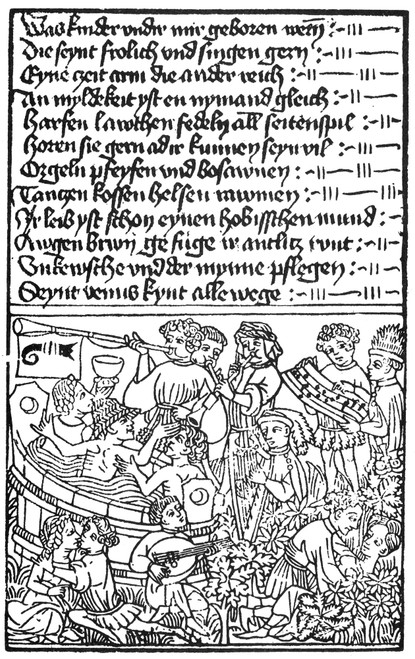 Was kinder vnder mir geboren werñ
Die seynt frolich vnd singen gern
Eyne czeit arm die ander reich
An myldekeit yst en nymand gleich
Harfen lawthen fedeln all seitenspil
Horen sie gern adir kunnen seyn vil
Orgeln pfeyfen vnd bosawnen
Tantzen kossen helsen rawmen
Ir leib yst schon eynen hobisschen mund
Awgen brwn ge fuge ir antlitz rvnt
Vnkewsche vnd der mynne pflegen
Seynt venus kynt alle wege